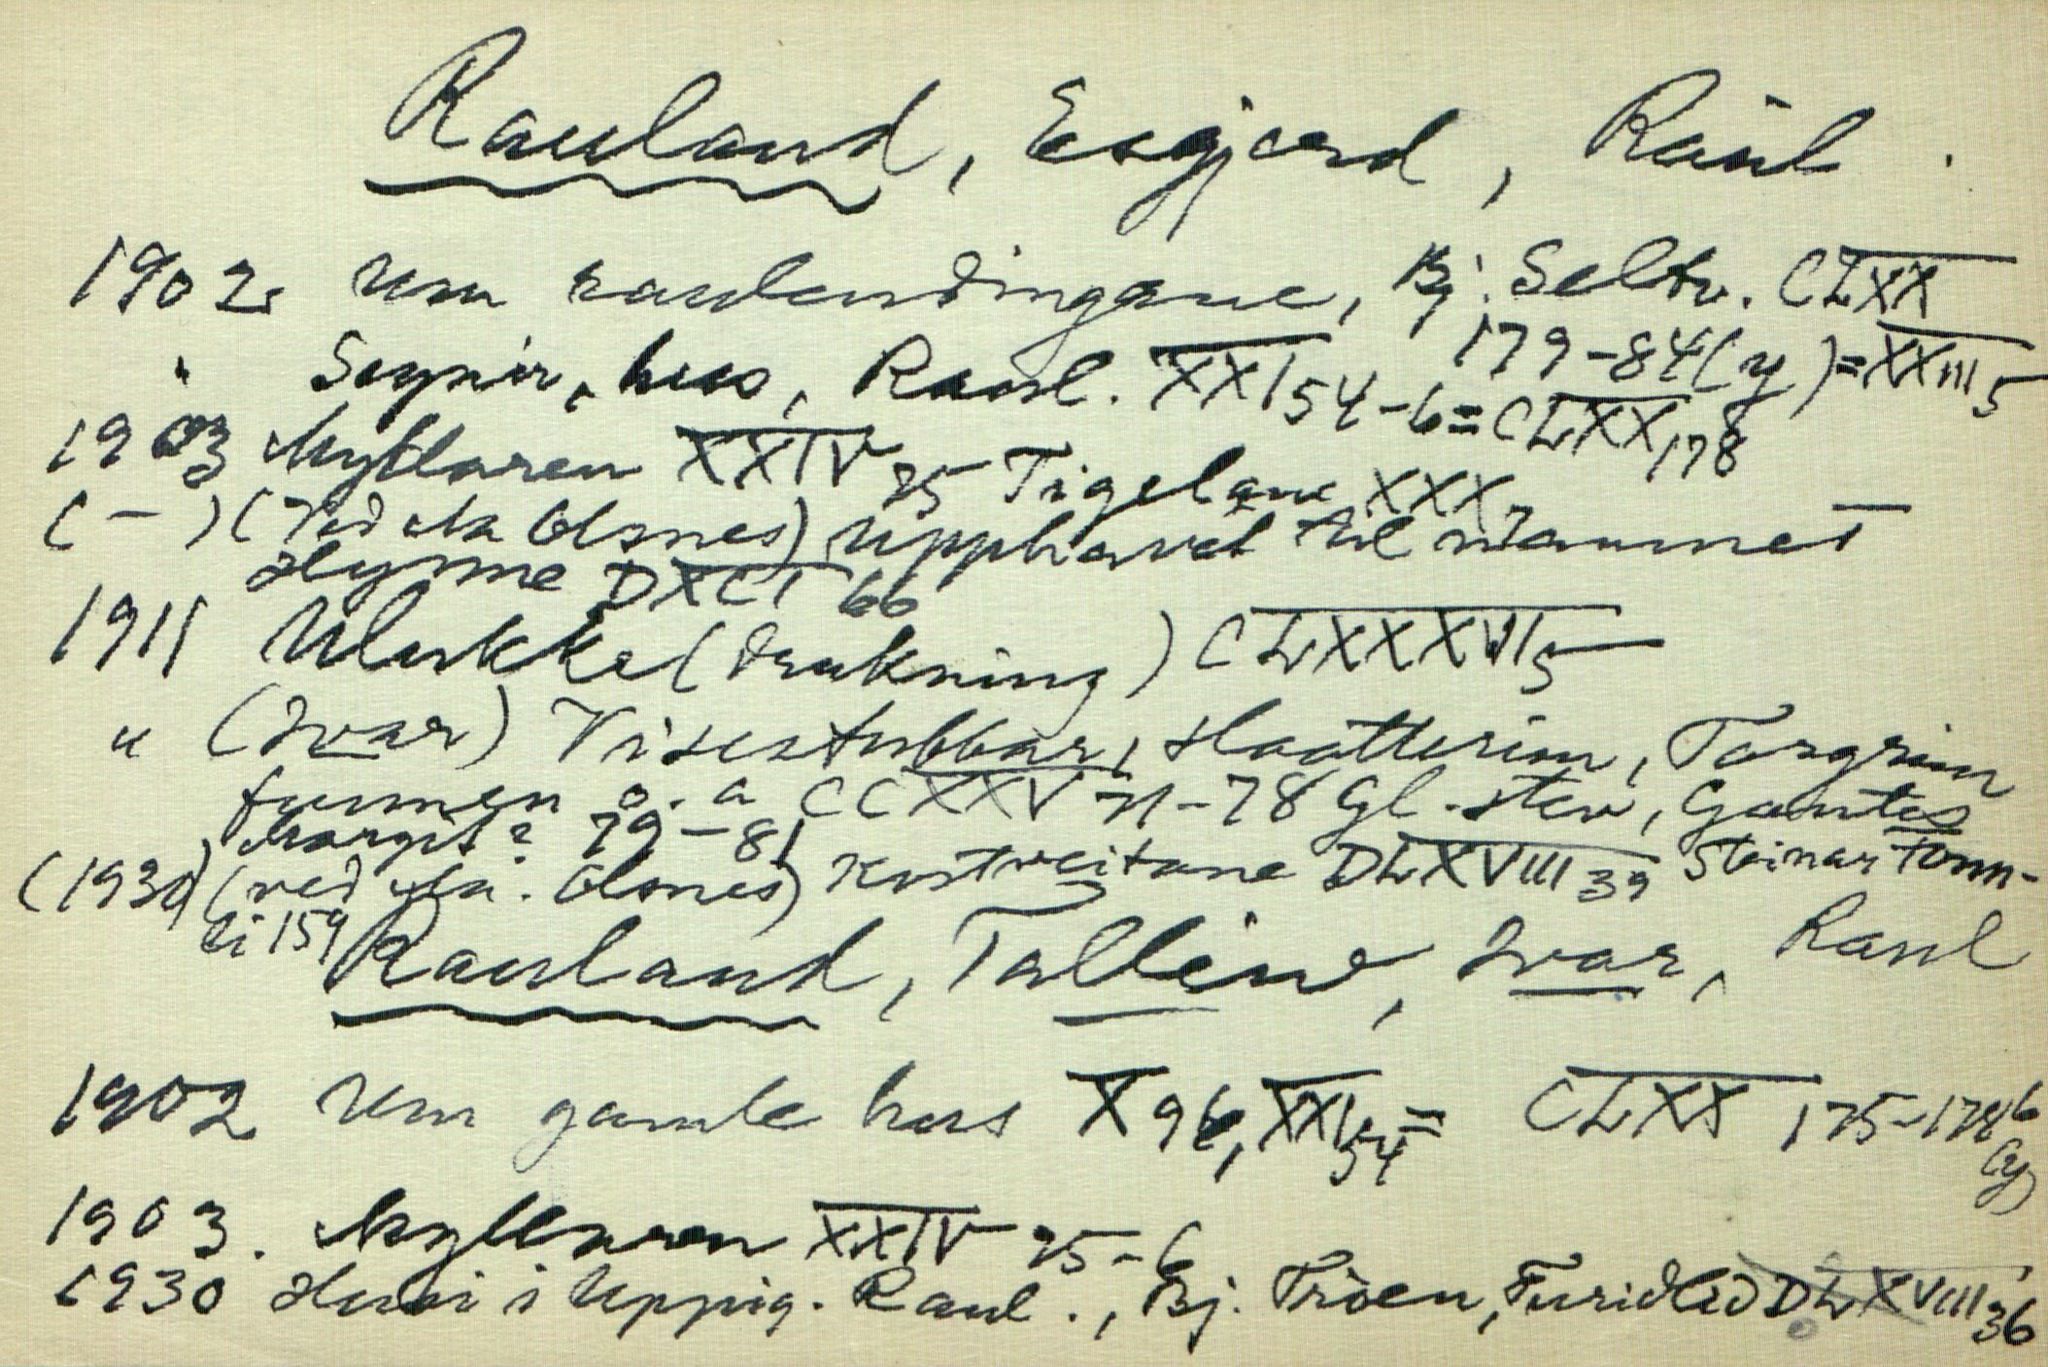 Rauland, Esgjerd, Raul.
1902 Um raulendingane, Bj. Seltv. CLXX
179-84 (y) = XXIII 5
" hus, Raul. XXI 54-6 = CLXX 178
1903 Myllaren XXIV 25 Tigelane XXX
(-) (ved Olsnes) Upphavet til namnet
DXCI 66
1911 Ulukke (drukning) CLXXXVI 5
" (Ivar) Visestubbar, Torgrim
o. a CCXXV 71-78 Gl. stev,
Margit? 79-81
(1930) (ved Olsnes) DLXVIII 39 Steinar Tomm-
li 159
Rauland, Talleiv, Ivar, Raul
1902 Um gamle hus X 96, XXI 54 = CLXX 175-178
(y)
1903. Myllaren XXIV 25-6
1930 i Uppig. Raul., Bj. Tröen, Turidlid DLXVIII 36